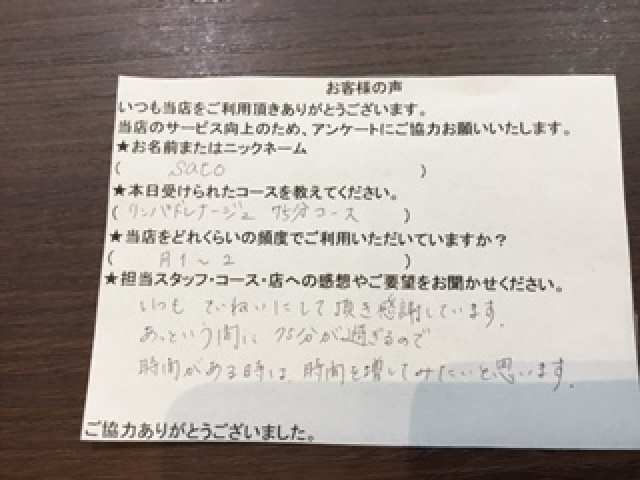 お客様の声
いつも当店をご利用頂きありがとうございます。
当店のサービス向上のため、アンケートにご協力お願いいたします。
★お名前またはニックネーム
( sato )
★本日受けられたコースを教えてください。
( リンパドレナージュ 75分コース )
★当店をどれくらいの頻度でご利用いただいていますか？
( 月1～2 )
★担当スタッフ・コース・店への感想やご要望をお聞かせください。
いつも ていねいにして頂き感謝しています。
あっという間に 75分が過ぎるので
時間がある時は 時間を増してみたいと思います。
ご協力ありがとうございました。